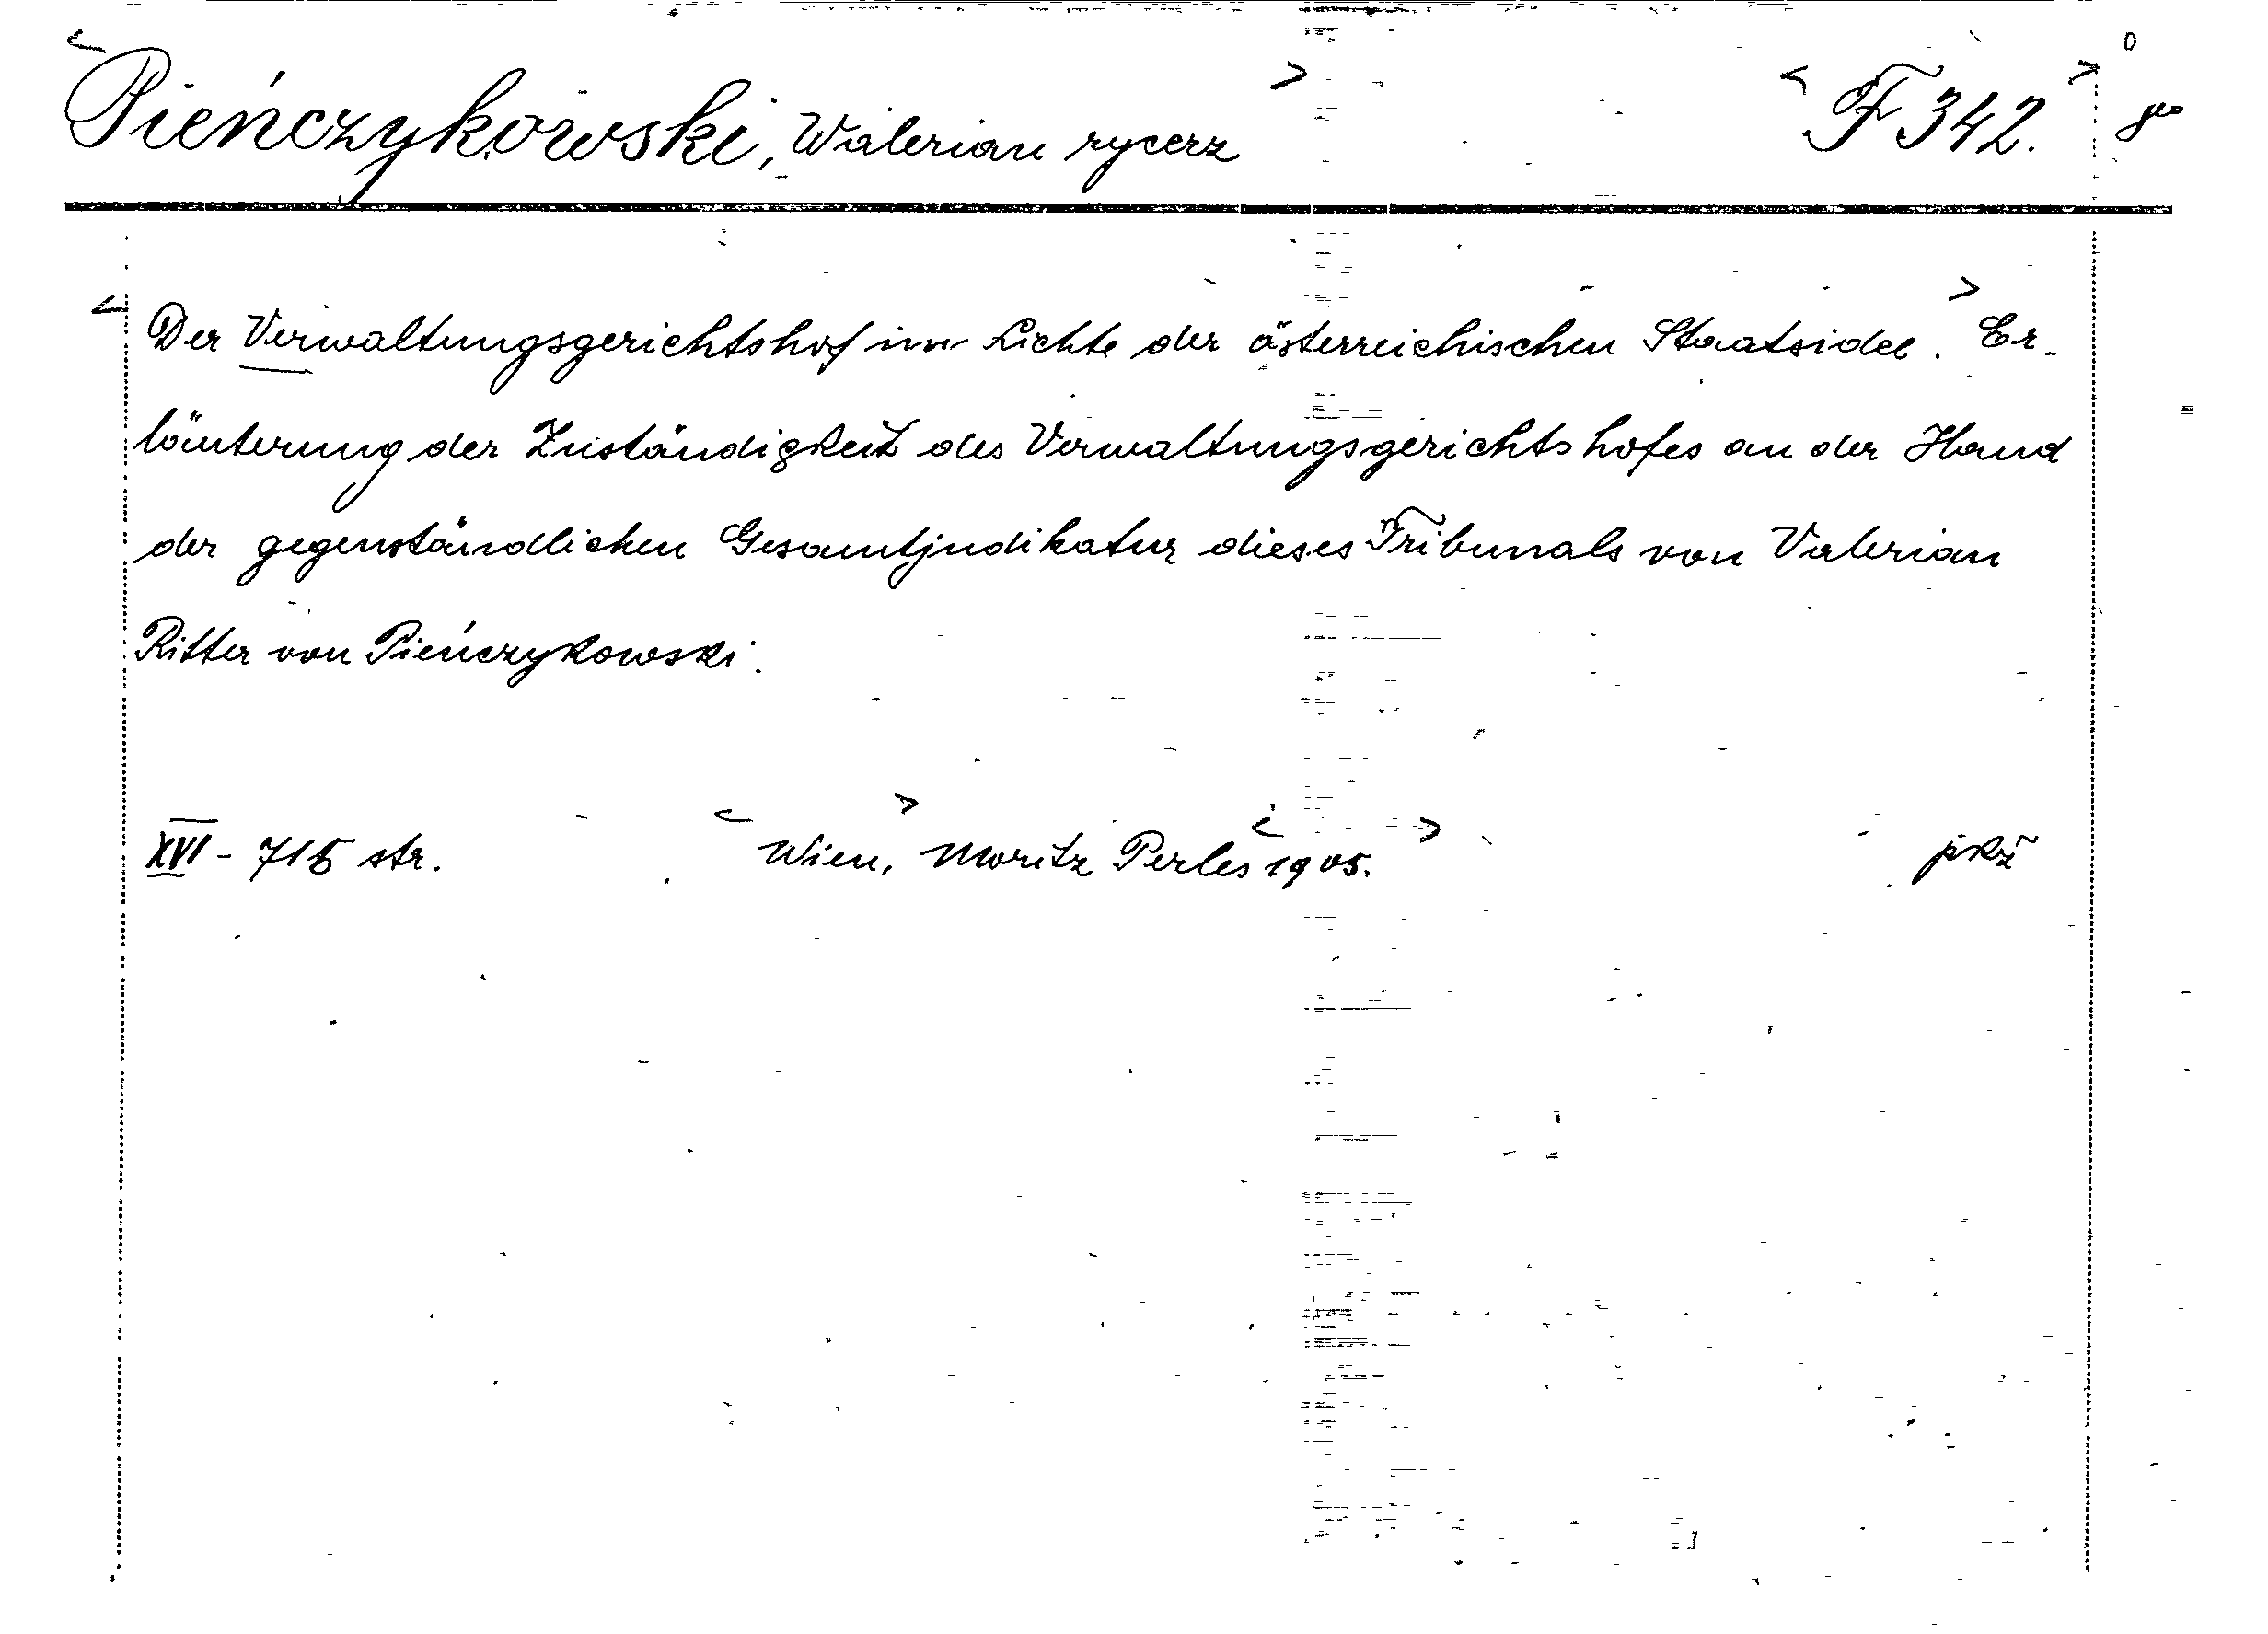 <Pieńczykowski, Walerian rycerz> <F 342.> 8°
<Der Verwaltungsgerichtshof im Lichte der österreichischen Staatsidee.> Er-
läuterung der Zuständigkeit des Verwaltungsgerichtshofes an der Hand
der gegenständlichen Gesamtjudikatur dieses Tribunals von Valerian
Ritter von Pieńczykowski.
XVI - 715 str. <Wien,> Moritz Perles <1905.>